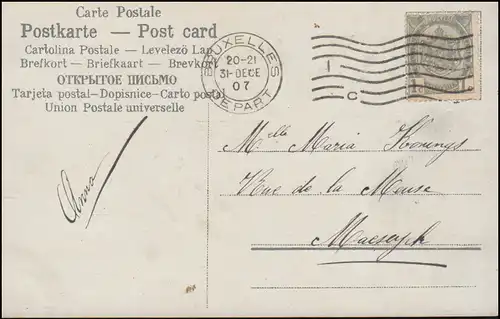 Carte Postale
Postkarte — Post card
Cartolina Postale – Levelezö Lap
Brefkort – Briefkaart – Brevkort
ОТКРЫТОЕ ПИСЬМО
Tarjeta postal–Dopisnice–Carto postal
Union Postale universelle
BRUXELLES
20-21
31-DECE
07
DEPART
1
C
1c 1c
Melle Maria Konings
Rue de la Meuse
Maeseyck
Anna